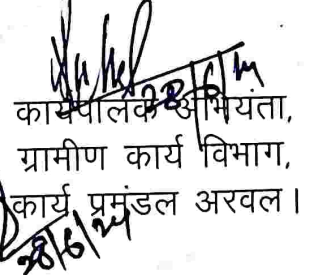 28/6/24
कार्यपालक अभियंता,
ग्रामीण कार्य विभाग,
कार्य प्रमंडल अरवल।
28/6/24